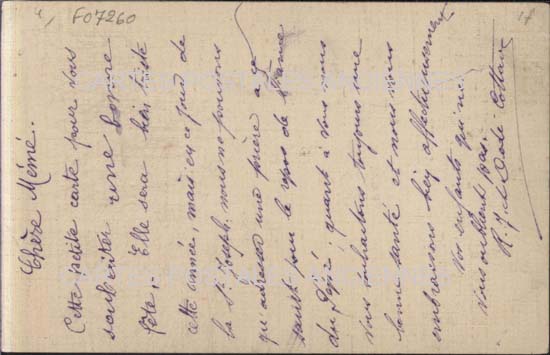 F07260
Chère Mémé.
Cette petite carte pour vous
souhaiter une bonne
fête. Elle sera bien triste
cette année, mais en ce jour de
la St. Joseph, nous ne pouvons
qu'adresser une prière à ce
saint pour le repos de l'âme
du Pépé; quant à vous nous
vous souhaitons toujours une
bonne santé et nous vous
embrassons bien affectueusement
Vos enfants qui ne
vous oublient pas.
R. J. Dédé